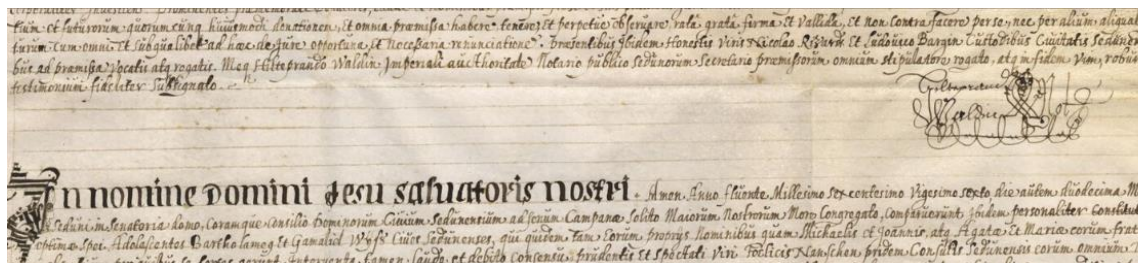 tium et futurorum quorum cunq huiusmodi donationem, et omnia præmissa habere, tenere, et perpetue observare, rata, grata, firma et vallida, et non contra facere per se, nec per alium aliqua
turum cum omni et sub qualibet ad hæc de jure opportuna, et necessaria renunciatione. Præsentibus ibidem Honestis viris Nicolao Et Ludovico Custodibus Civitatis
bus ad præmissa vocatis atq rogatis. Meq Hilteprando Waldin, Imperiali aucthoritate Notario publico Sedunorum Secretario præmissorum omnium stipulatore rogato, atq in fidem vim, robur
testimonium fideliter subsignato.
Hilteprand
Waldin
In nomine Domini Jesu salvatoris nostri. Amen. Anno fluente Millesimo sexcentesimo Vigesimo sexto die autem duodecima
Seduni in Senatoria domo, Coramque Consilio Dominorum Civium Sedunensium ad sonum Campanæ solito Maiorum Nostrorum More Congregato, Comparuerunt ibidem personaliter Constituti
optimæ spei Adolescentes Bartholameq et Gamaliel Wyss Cives Sedunenses, qui quidem tam Eorum proprys Nominibus quam Michaelis et Joannis, atq Agatæ et Mariæ eorum frat
laudo, et debito Consensu, prudentis et Spectati viri Nanschen pridem Consulis Sedunensis eorum omnium